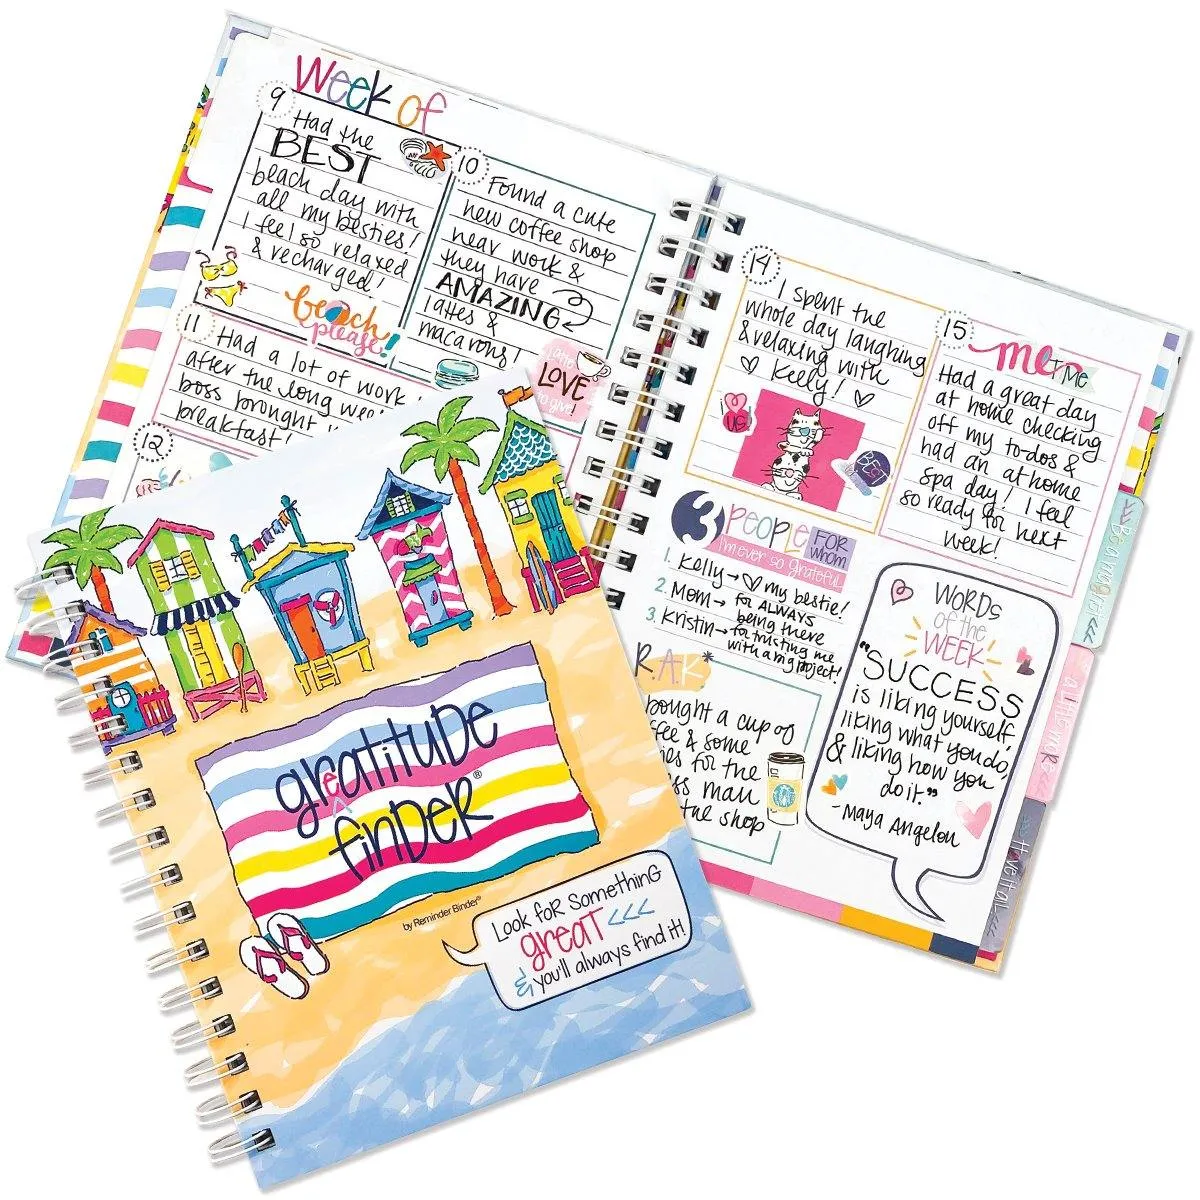 Week of
9
Had the
BEST
beach day with
all my besties!
I feel so relaxed
& recharged!
beach
please!
10
Found a cute
new coffee shop
near work &
they have
AMAZING
lattes &
macarons!
latte
LOVE
to give!
11
Had a lot of work
after the long
boss brought
breakfast!
12
14
I spent the
whole day laughing
& relaxing with
Kelly!
US!
BEST
15
me TIME
Had a great day
at home checking
off my to-dos &
had an at home
spa day! I feel
so ready for next
week!
3 PEOPLE FOR WHOM
I'm ever so grateful
1. Kelly → my bestie!
2. Mom → for ALWAYS
being there
3. Kristin → for trusting me
with a big project!
R.A.K*
bought a cup of
& some
for the
man
the shop
WORDS
of the
WEEK
"SUCCESS
is liking yourself,
liking what you do,
& liking how you
do it."
- Maya Angelou
a little more
gratitude
finder®
by Reminder Binder®
Look for something
great <<<
& you'll always find it!